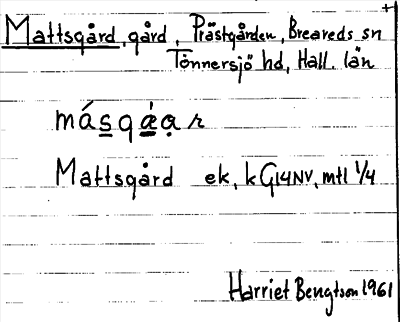 Mattsgård, gård, Prästgården, Breareds sn
Tönnersjö hd, Hall. län
Mattsgård ek, k G14NV, mtl 1/4
Harriet Bengtson 1961